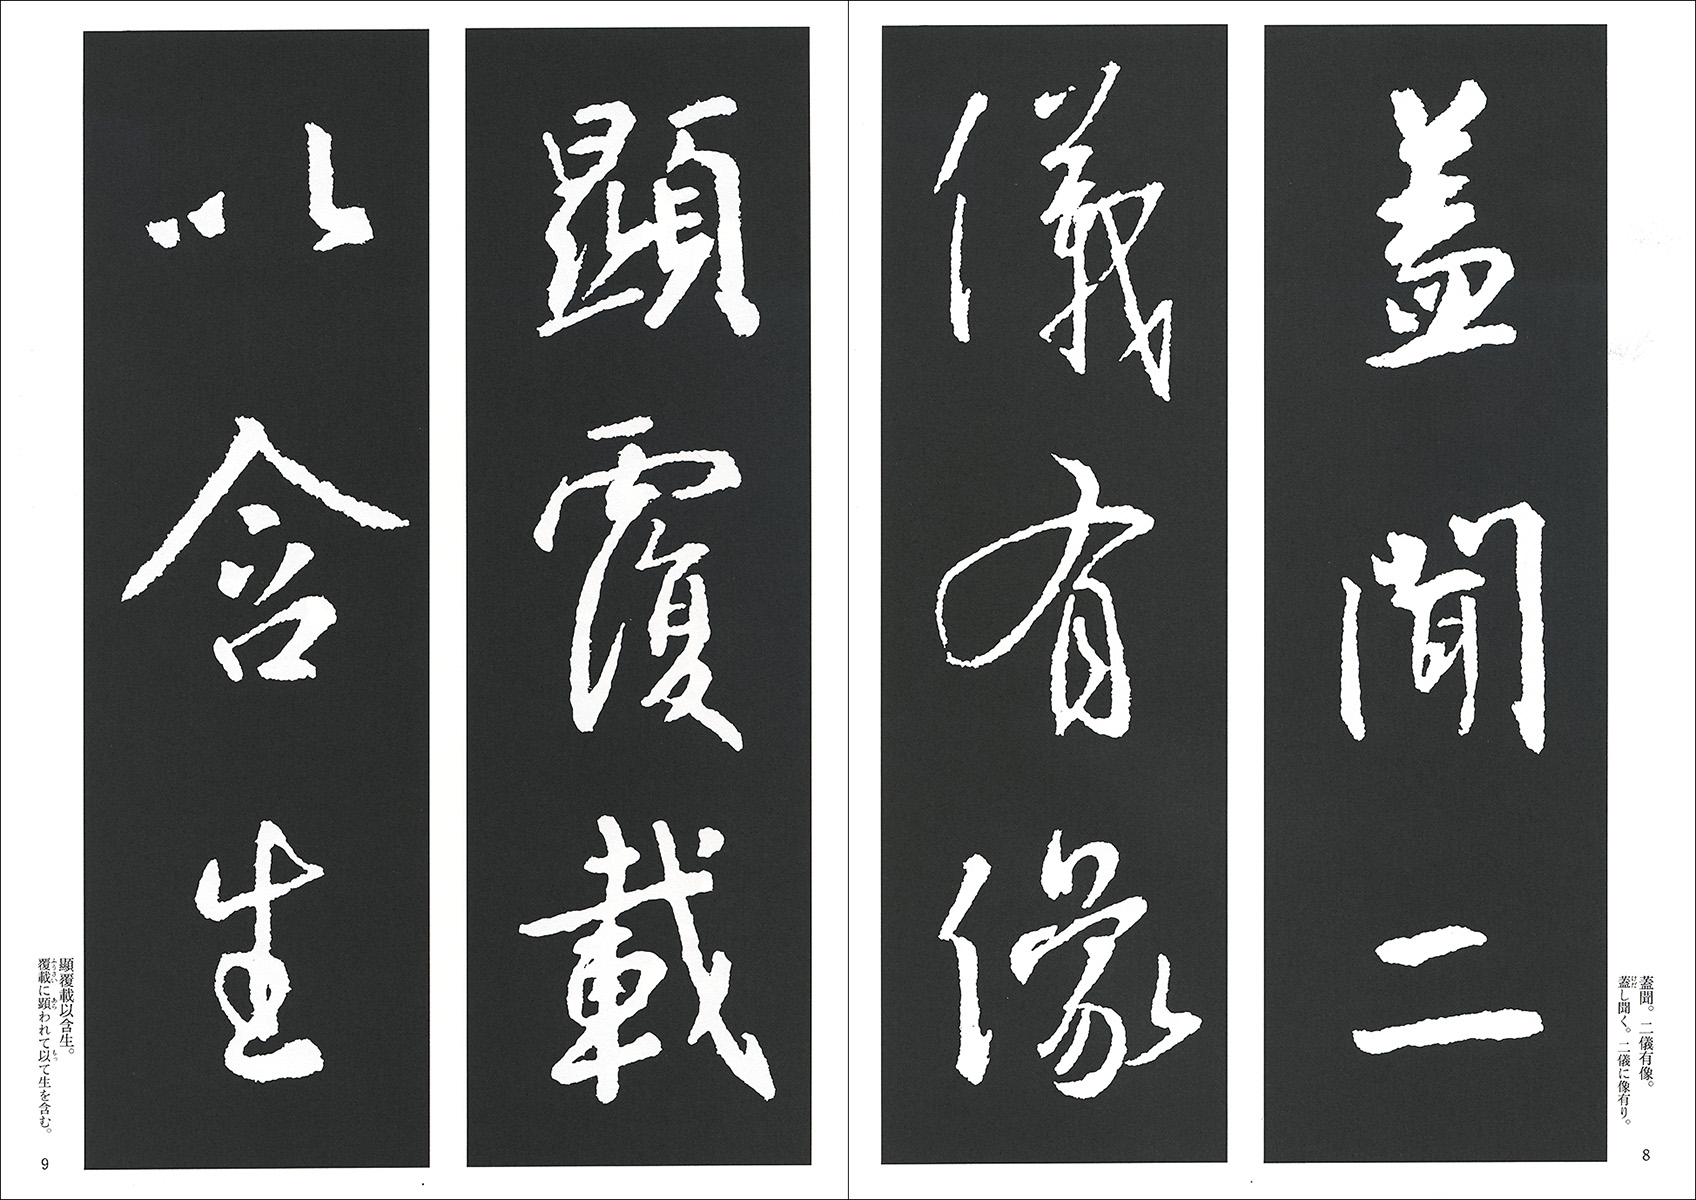 蓋聞二
儀有像
蓋聞。二儀有像。
蓋し聞く。二儀に像有り。
けだ
8
顕覆載
以含生
顯覆載以含生。
覆載に顕われて以て生を含む。
ふうさい あら もっ
9